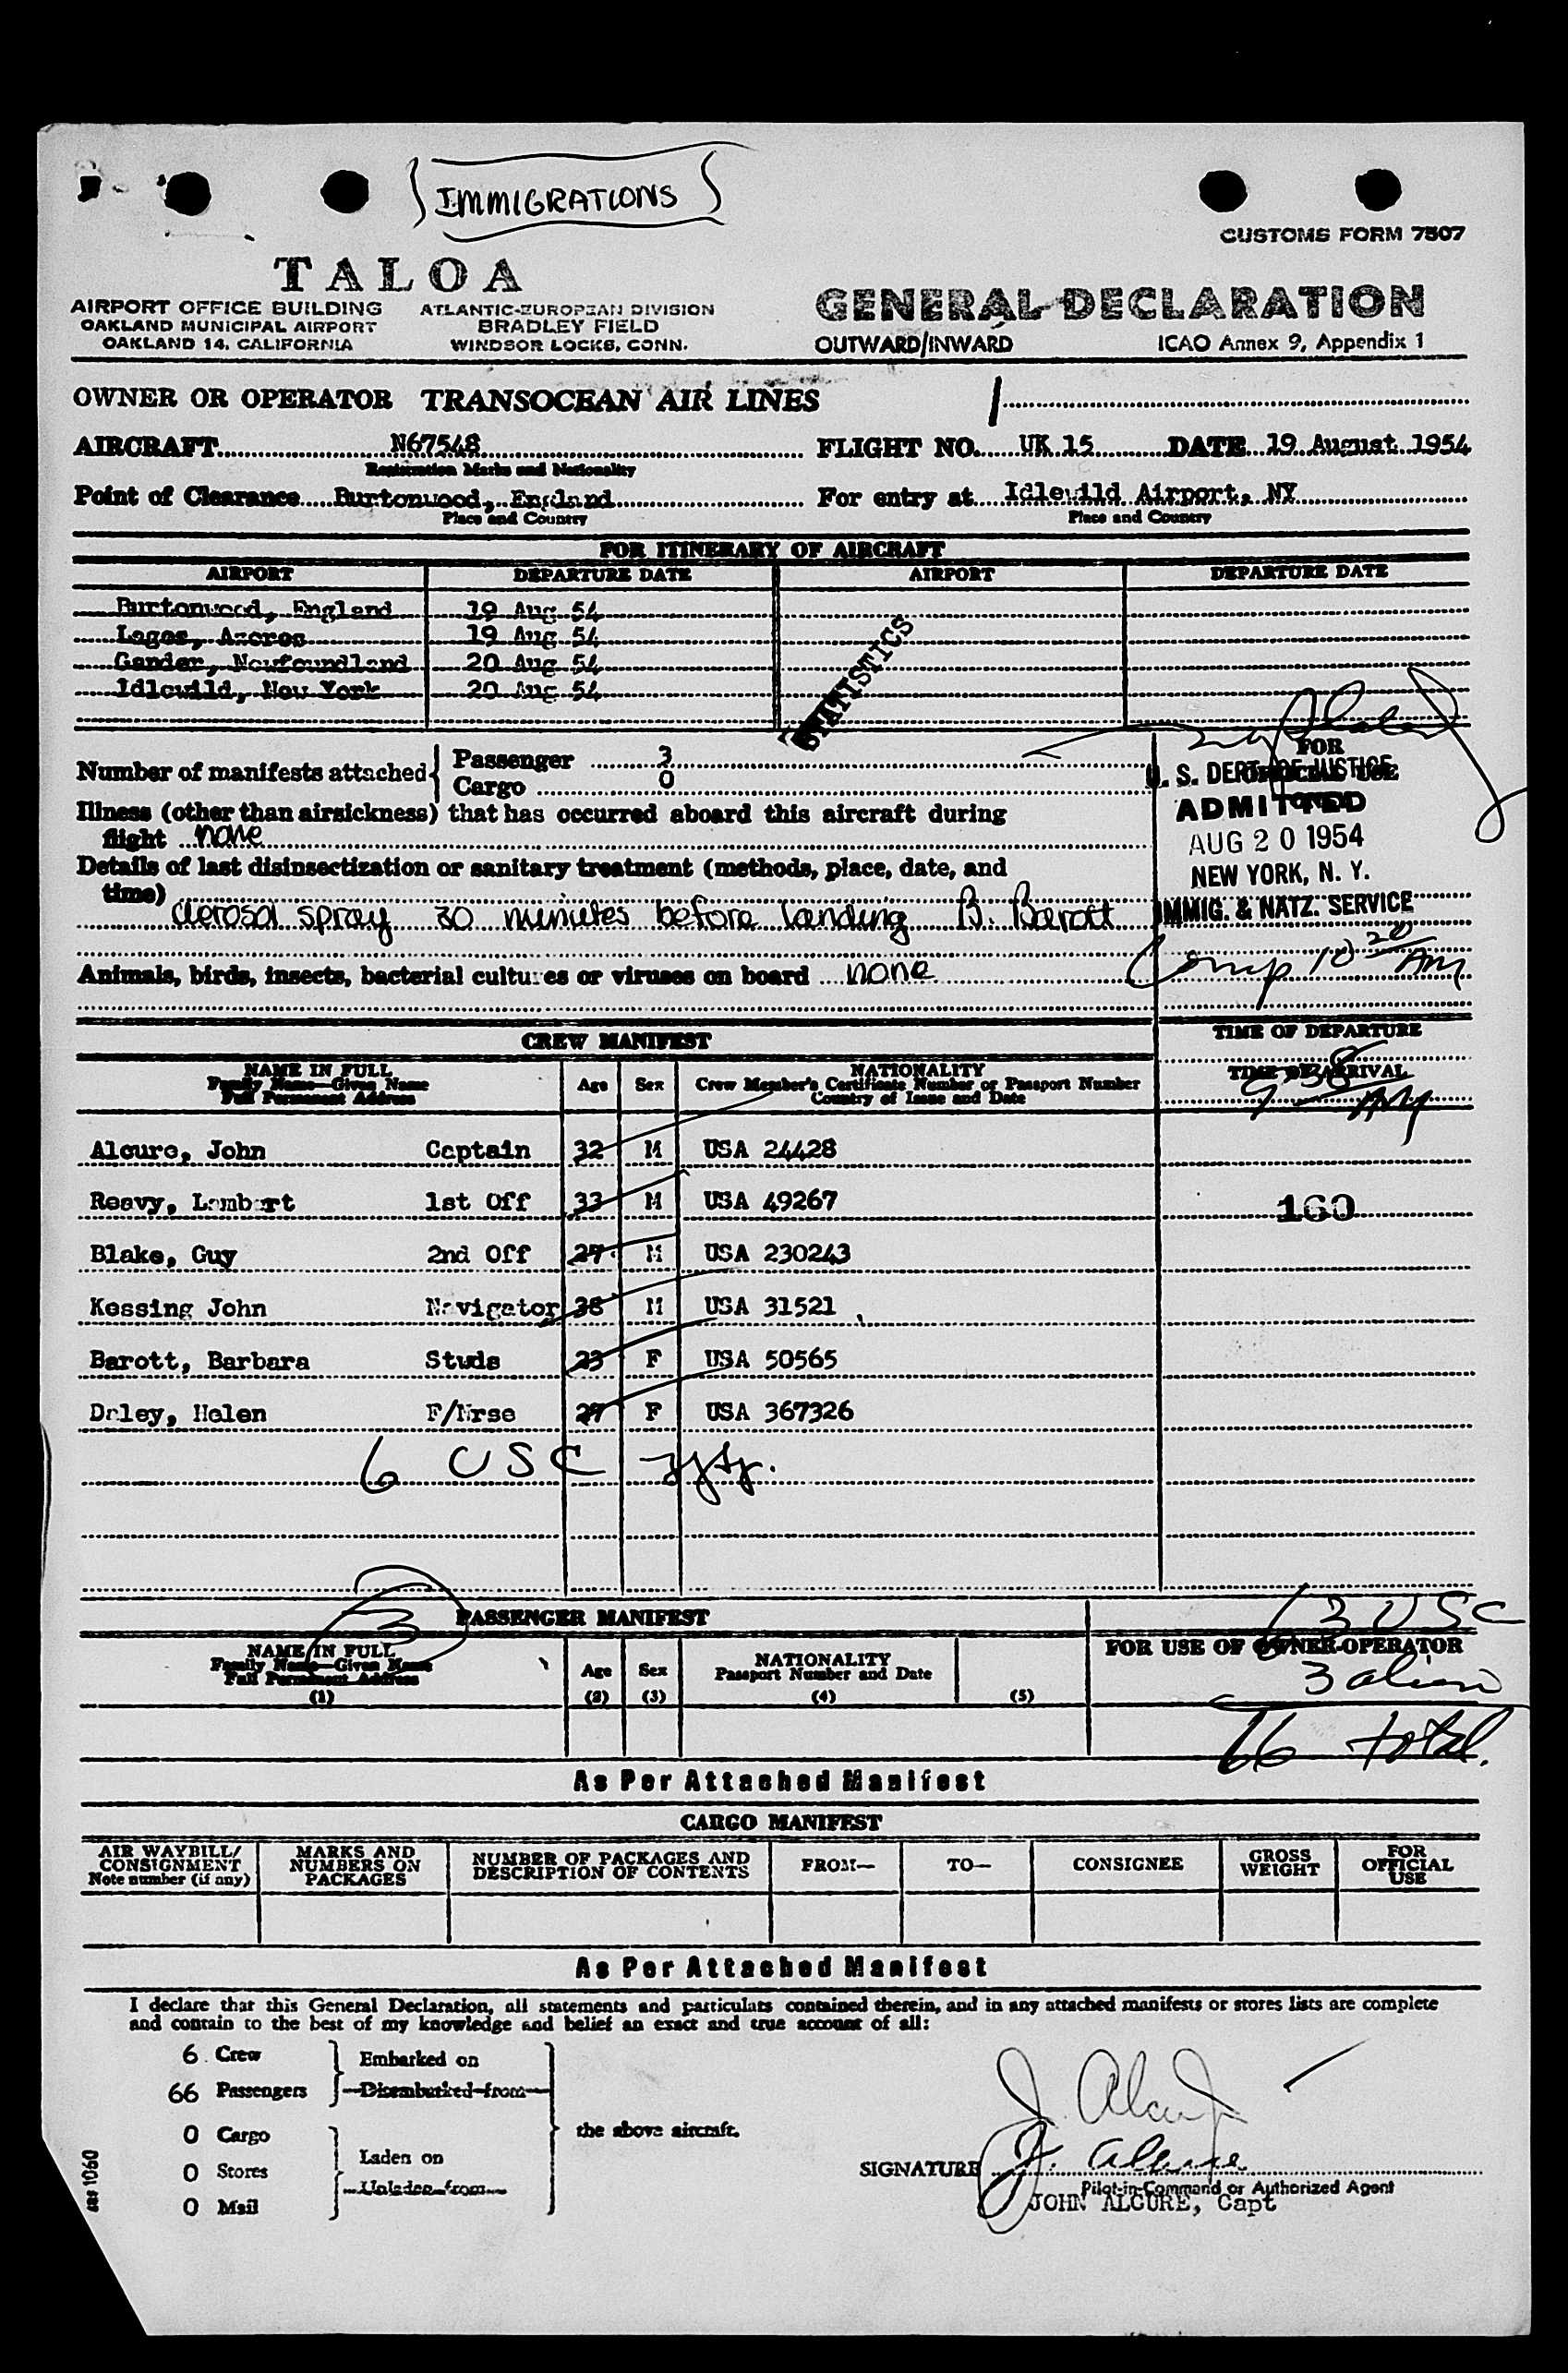 IMMIGRATIONS
CUSTOMS FORM 7507
TALOA
AIRPORT OFFICE BUILDING
OAKLAND MUNICIPAL AIRPORT
OAKLAND 14, CALIFORNIA
ATLANTIC-EUROPEAN DIVISION
BRADLEY FIELD
WINDSOR LOCKS, CONN.
GENERAL DECLARATION
OUTWARD/INWARD
ICAO Annex 9, Appendix 1
OWNER OR OPERATOR TRANSOCEAN AIR LINES
AIRCRAFT N67548 FLIGHT NO. UK 15 DATE 19 August 1954
Registration Marks and Nationality
Point of Clearance Burtonwood, England For entry at Idlewild Airport, NY
Place and Country Place and Country
FOR ITINERARY OF AIRCRAFT
AIRPORT DEPARTURE DATE AIRPORT DEPARTURE DATE
Burtonwood, England 19 Aug 54
Lages, Azores 19 Aug 54
Gander, Newfoundland 20 Aug 54
Idlewild, New York 20 Aug 54
STATISTICS
Number of manifests attached
Passenger 3
Cargo 0
FOR
OFFICIAL USE
U. S. DEPT. OF JUSTICE
ADMITTED
AUG 20 1954
NEW YORK, N. Y.
IMMIG. & NATZ. SERVICE
Comp 10 20 AM
Illness (other than airsickness) that has occurred aboard this aircraft during
flight none
Details of last disinsectization or sanitary treatment (methods, place, date, and
time)
aerosol spray 30 minutes before landing B. Barott
Animals, birds, insects, bacterial cultures or viruses on board none
CREW MANIFEST
TIME OF DEPARTURE
TIME OF ARRIVAL
9 38 AM
NAME IN FULL
Family Name—Given Name
Full Permanent Address
Age
Sex
NATIONALITY
Crew Member's Certificate Number or Passport Number
Country of Issue and Date
Alcure, John Captain 32 M USA 24428
Reavy, Lambert 1st Off 33 M USA 49267
160
Blake, Guy 2nd Off 27 M USA 230243
Kessing John Navigator 38 M USA 31521
Barott, Barbara Studs 23 F USA 50565
Daley, Helen F/Nrse 27 F USA 367326
6 USC
3
PASSENGER MANIFEST
63 USC
FOR USE OF OWNER-OPERATOR
3 alien
66 total.
NAME IN FULL
Family Name—Given Name
Full Permanent Address
(1)
Age
(2)
Sex
(3)
NATIONALITY
Passport Number and Date
(4)
(5)
As Per Attached Manifest
CARGO MANIFEST
AIR WAYBILL/
CONSIGNMENT
Note number (if any)
MARKS AND
NUMBERS ON
PACKAGES
NUMBER OF PACKAGES AND
DESCRIPTION OF CONTENTS
FROM—
TO—
CONSIGNEE
GROSS
WEIGHT
FOR
OFFICIAL
USE
As Per Attached Manifest
I declare that this General Declaration, all statements and particulars contained therein, and in any attached manifests or stores lists are complete
and contain to the best of my knowledge and belief an exact and true account of all:
6 Crew
66 Passengers
Embarked on
Disembarked from
0 Cargo
0 Stores
0 Mail
Laden on
Unladen from
the above aircraft.
J. Alcure
SIGNATURE J. Alcure
Pilot-in-Command or Authorized Agent
JOHN ALCURE, Capt
1060